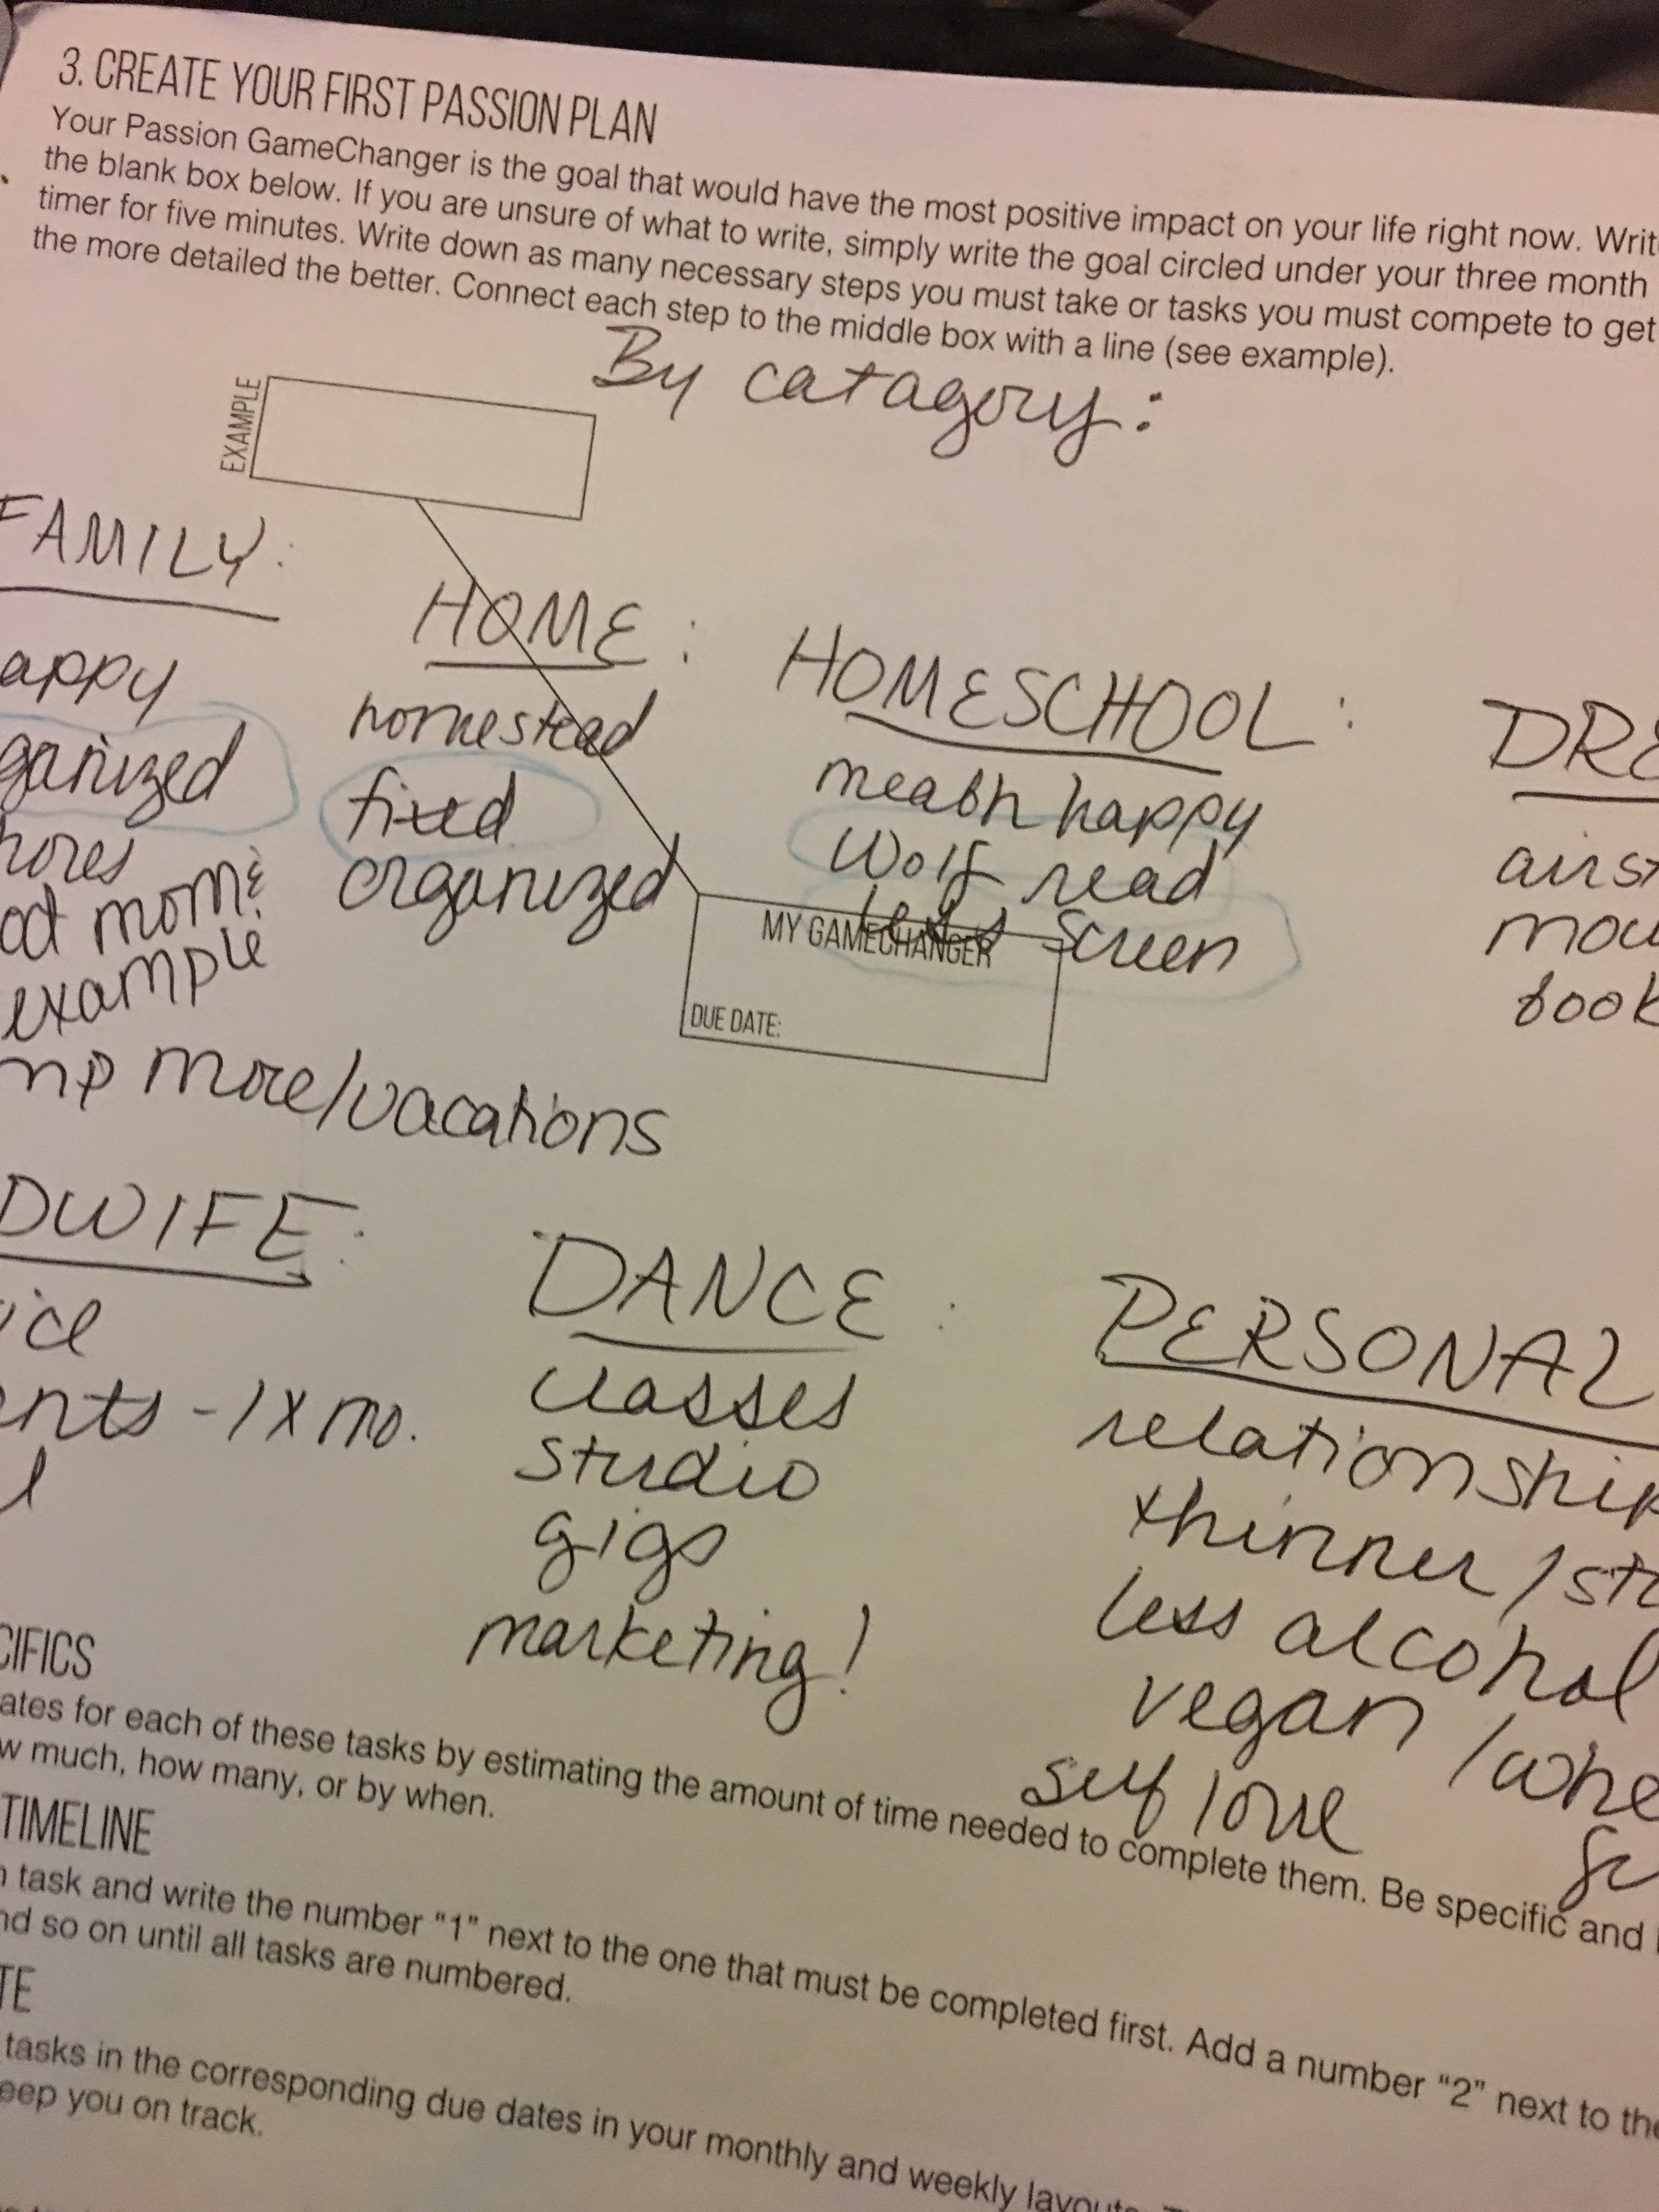 3. CREATE YOUR FIRST PASSION PLAN
Your Passion GameChanger is the goal that would have the most positive impact on your life right now. Writ
the blank box below. If you are unsure of what to write, simply write the goal circled under your three month
timer for five minutes. Write down as many necessary steps you must take or tasks you must compete to get
the more detailed the better. Connect each step to the middle box with a line (see example).
By catagory:
EXAMPLE
FAMILY:
appy
ganized
hores
od mom &
example
mp more/vacations
HOME:
homestead
fixed
organized
HOMESCHOOL:
happy
Wolf read
less screen
MY GAMECHANGER
DUE DATE:
DRE
airst
mou
book
DWIFE:
ice
ents - 1 x mo.
l
DANCE:
classes
studio
gigs
marketing!
PERSONAL
relationship
thinner / str
less alcohol
vegan / whe
self love
CIFICS
ates for each of these tasks by estimating the amount of time needed to complete them. Be specific and
w much, how many, or by when.
TIMELINE
task and write the number "1" next to the one that must be completed first. Add a number "2" next to the
nd so on until all tasks are numbered.
TE
tasks in the corresponding due dates in your monthly and weekly layouts.
eep you on track.